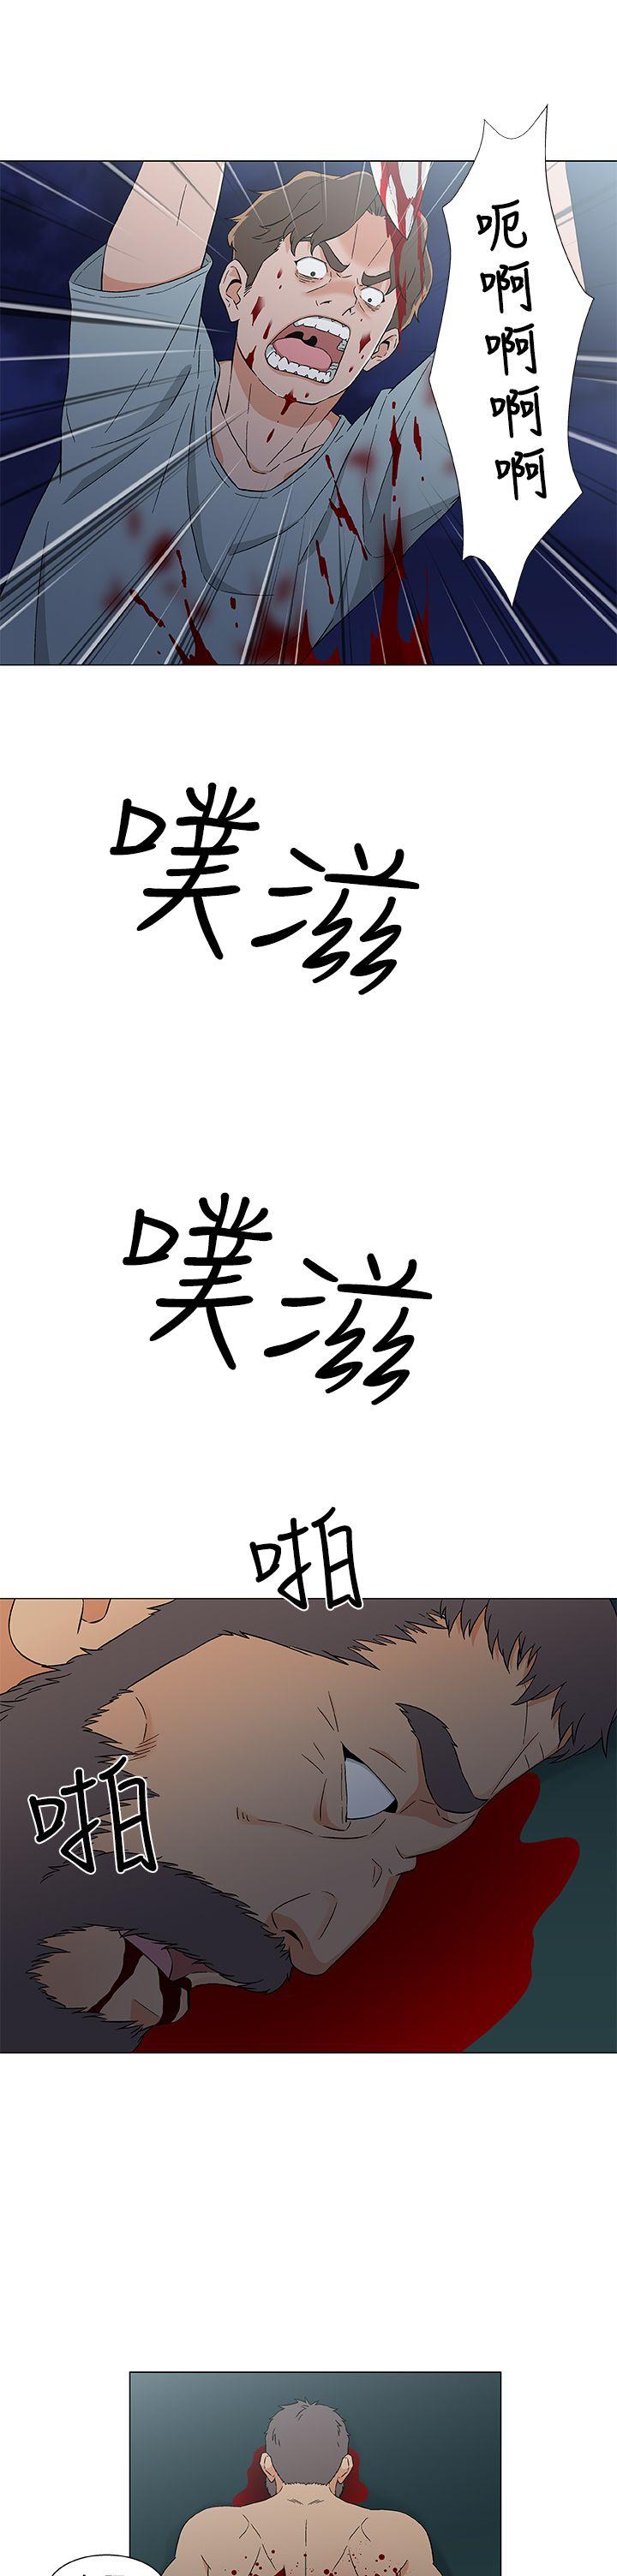 呃啊啊啊啊
噗滋
噗滋
啪
啪